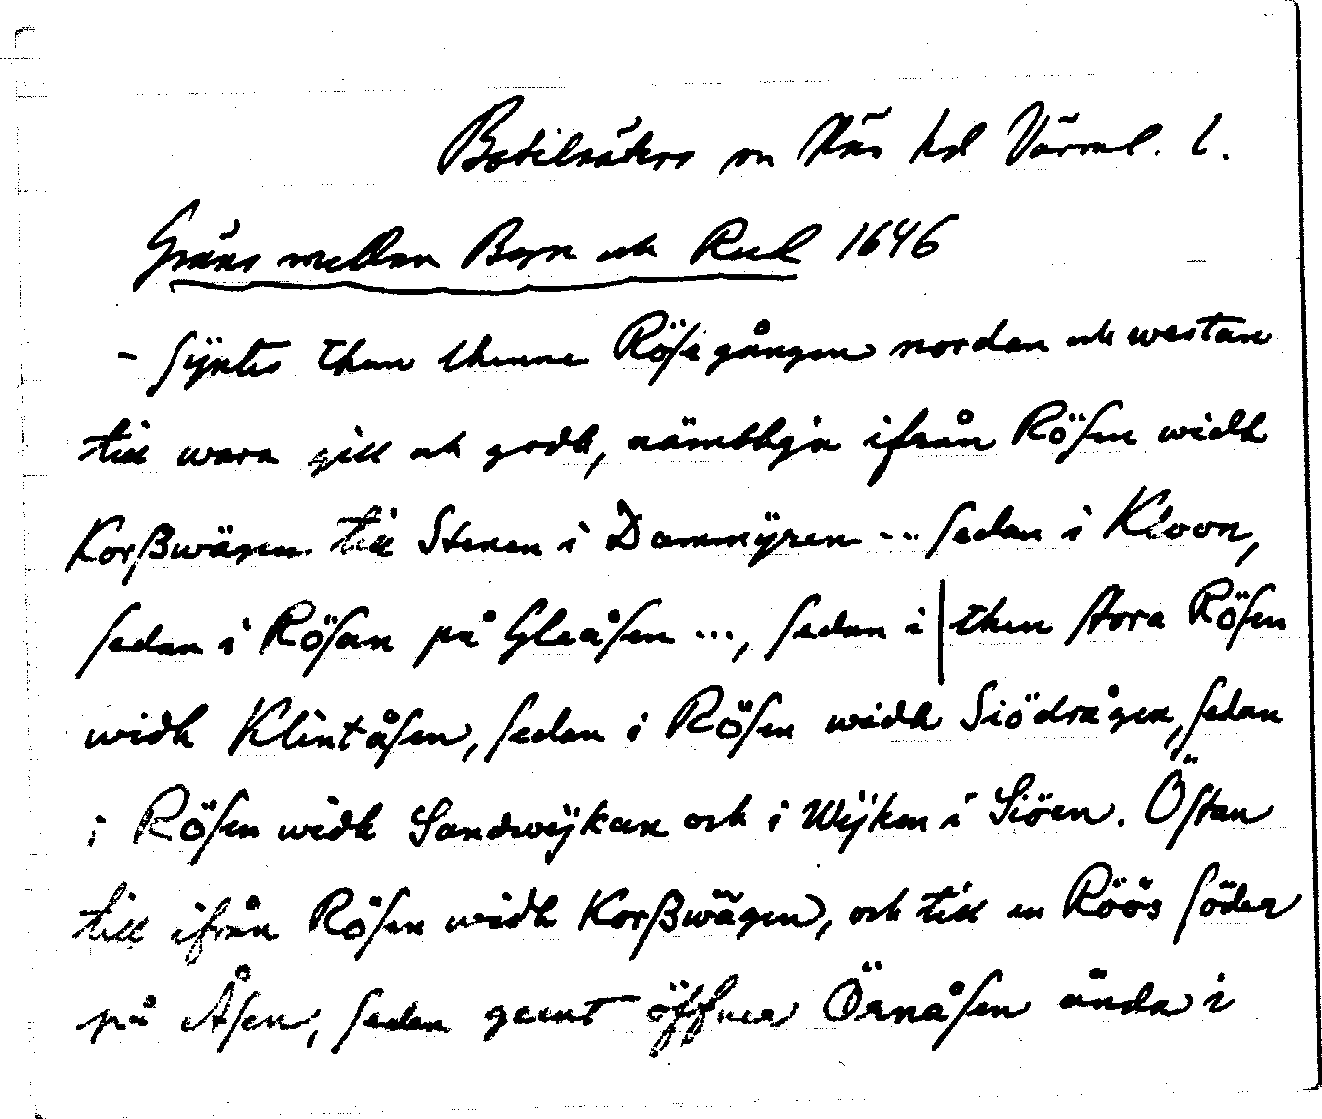 Botilsäters sn Näs hd Värml. l.
Gräns mellan Byn och Rud 1646
- Syntes then thenne Rösegången nordan och westan
till wara gill och godh, nämblign ifrån Rösen widh
Korßwägen till Stenen i Dammÿren ... sedan i Kloon,
sedan i Rösan på Gleåsen ..., sedan i | then stora Rösen
widh Klintåsen, sedan i Rösen widh Siödrågen, sedan
i Rösen widh Sandwijkan och i Wijken i Siöen. Östan
till ifrån Rösen widh Korßwägen, och till en Röös söder
på Åsen, sedan gent öffuer Örnåsen ända i